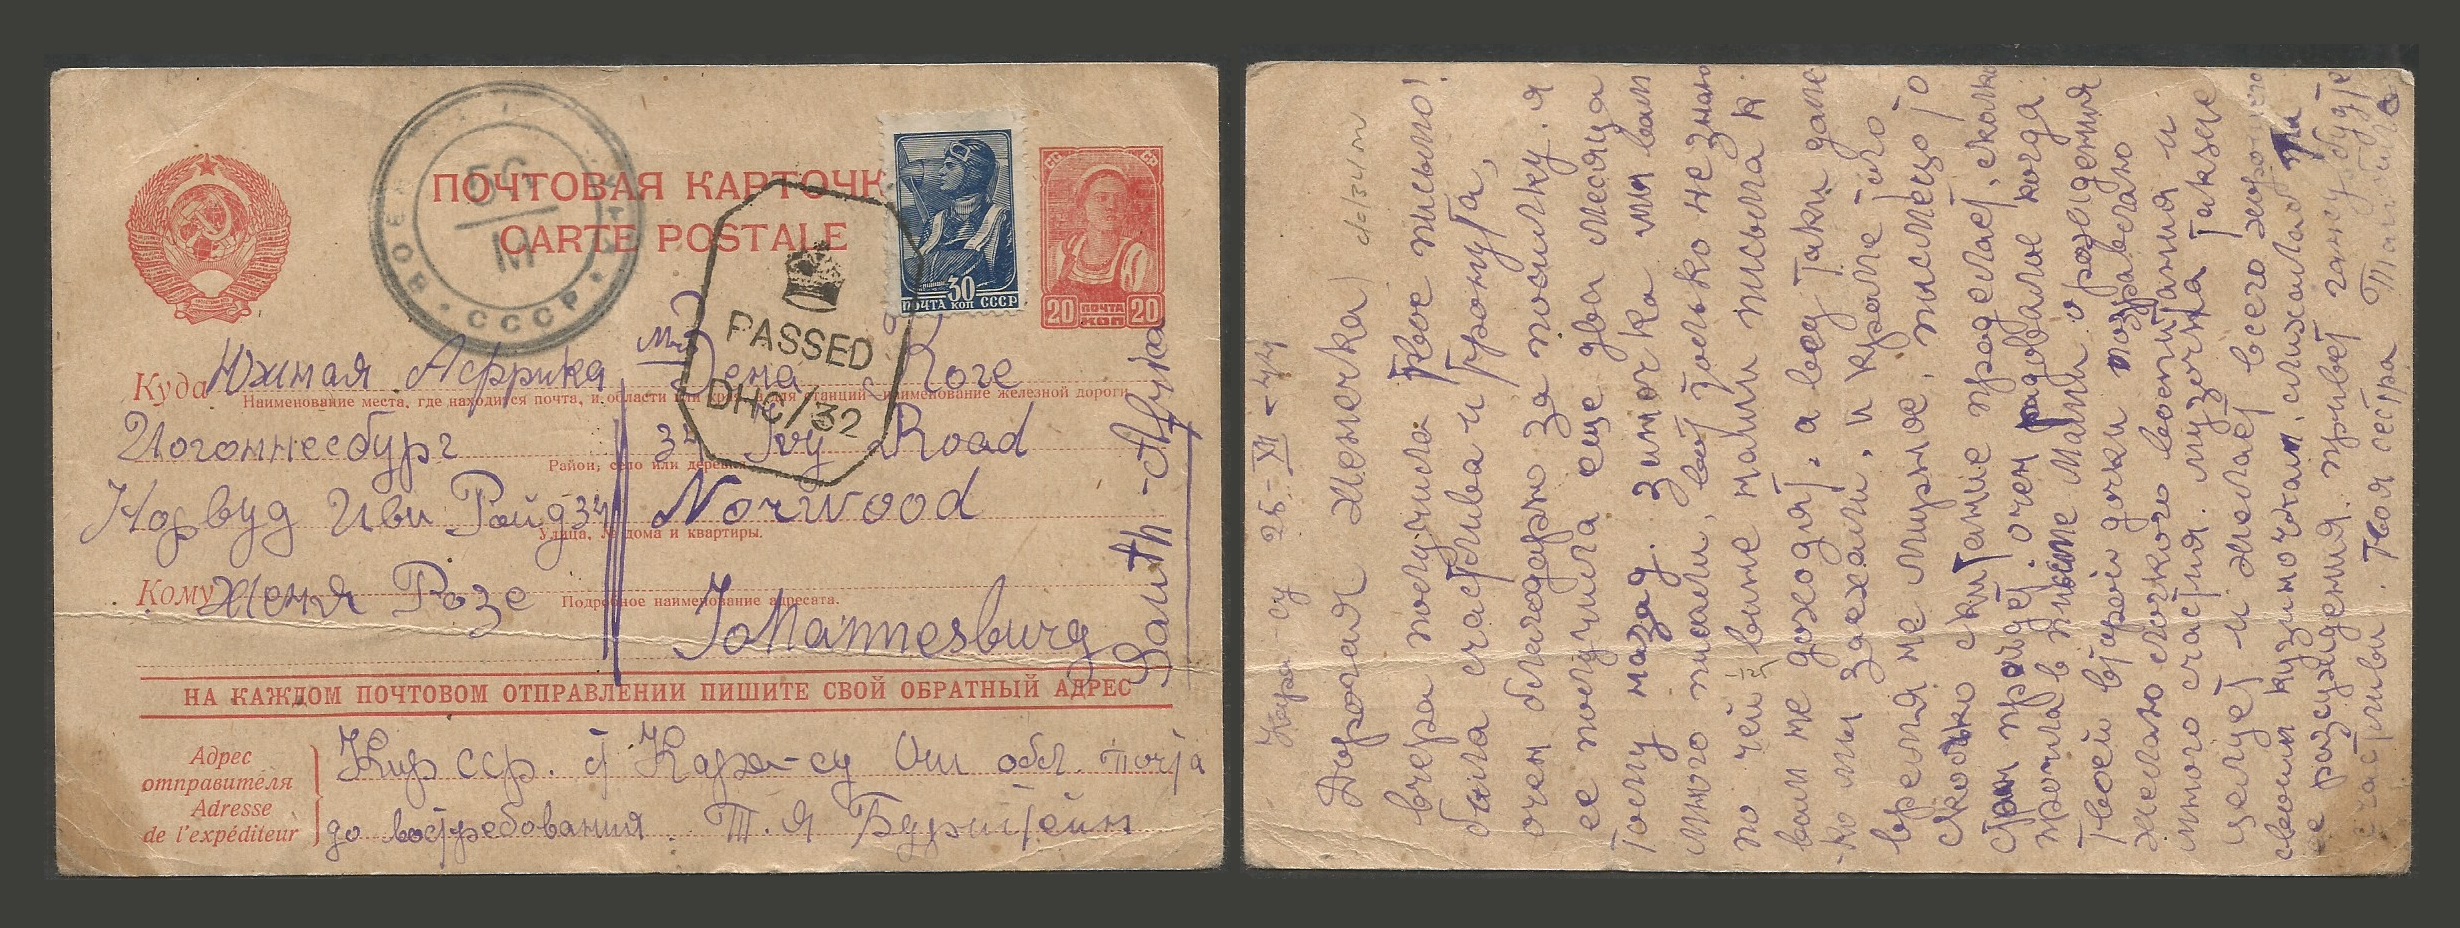 ПОЧТОВАЯ КАРТОЧК
CARTE POSTALE
СССР
56
М
PASSED
DHC/32
30
ПОЧТА КОП СССР
20 ПОЧТА КОП 20
Куда Южная Африка
Наименование места, где находится почта, и области или края, а для станций наименование железной дороги
Иогоннесбург
Район, село или деревня
Норвуд Иви Ройд 34
Улица, № дома и квартиры.
Кому Женя Розе
Подробное наименование адресата.
34 Ivy Road
Norwood
Johannesburg
South-Africa
НА КАЖДОМ ПОЧТОВОМ ОТПРАВЛЕНИИ ПИШИТЕ СВОЙ ОБРАТНЫЙ АДРЕС
Адрес
отправителя
Adresse
de l'expéditeur
Кир ССР. ст Кара-су Ош обл. почта
до востребования. Т. Я Бурштейн
Кара-су 25-XII-44
Дорогая Женечка!
вчера получила твое письмо!
была счастлива и тронута,
очен благодарю за посилку. я
ее получила еще два месяца
тому назад. Зиночка ми вам
много писали, вот только не знаю
по чей вине наши письма к
вам не доходят. а всё таки дале
-ко ми заехали, и кроме того
время не мирное, письмецо то
сколько скитание проделает, сколько
стран пройдет. очен радовалас когда
прочла в писме мами о рождения
твоей второй дочки поздравлаю
желаю легкого воспитания и
много счастия. музочка также
целует и желает всего хорошего
своим кузиночкам,
рассуждения. привет
счастливи. твоя сестра